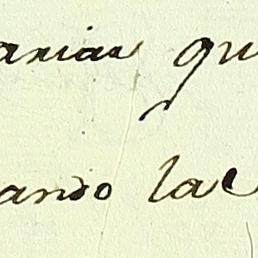 arias qu
ando la